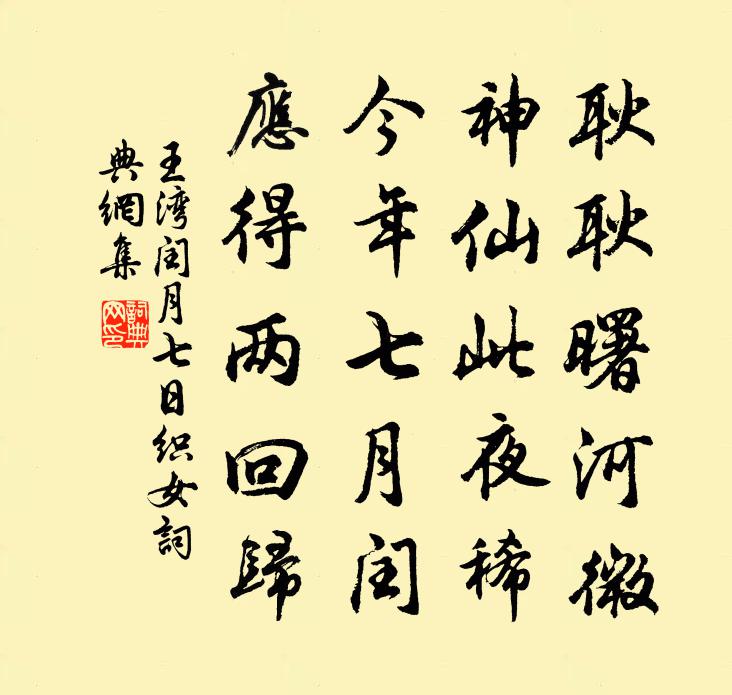 耿耿曙河微
神仙此夜稀
今年七月闰
應得两回歸
王湾闰月七日织女詞
典網集
詞典网印